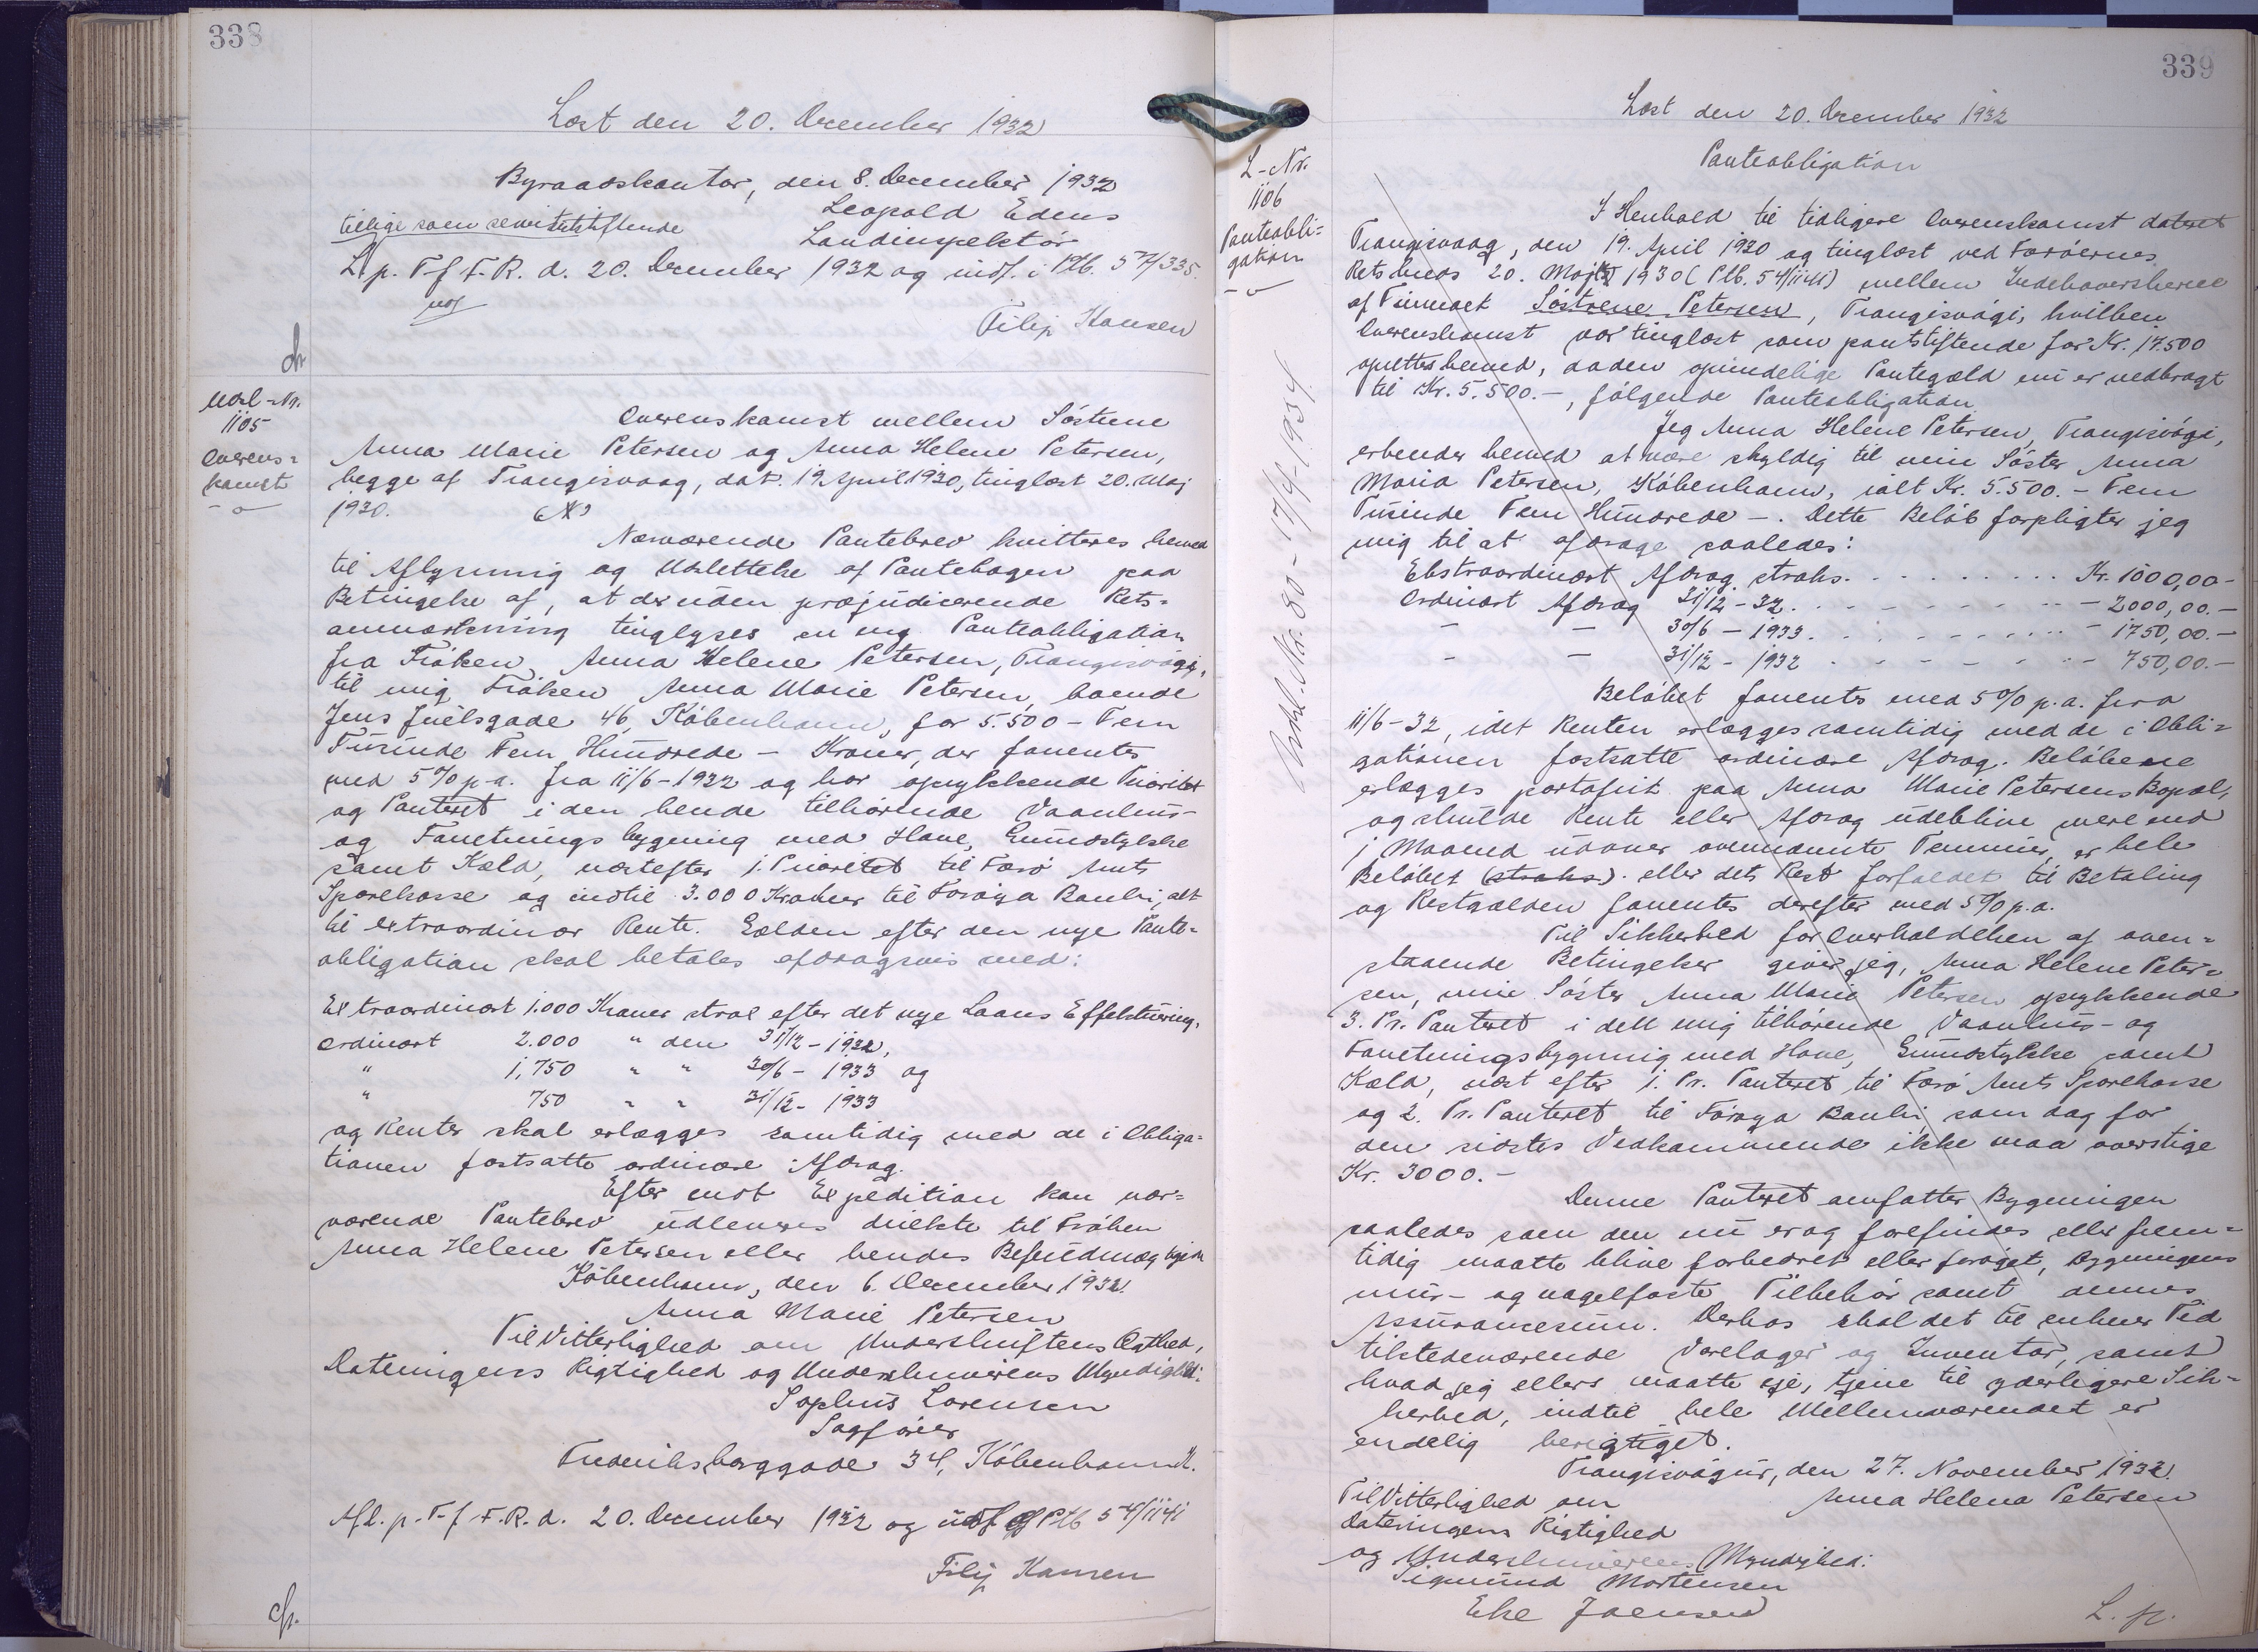 338
Læst den 20. December 1932
Byraadskontor, den 8. December 1932
Leopold Edens
tillige som servitutstiftende
Landinspektør
L. p. T. f. F. R. d. 20. December 1932 og indf. i Ptb. 57/335.
Filip Hansen
Udsl.-Nr.
1105
Overens=
komst
Overenskomst mellem Søstrene
Anna Marie Petersen og Anna Helene Petersen,
begge af Trangisvaag, dat. 19. April 1930, tinglæst 20. Maj
1930.
Nærværende Pantebrev kvitteres herved
til Aflysning og Udslettelse af Pantebogen paa
Betingelse af, at der uden præjudicerende Rets=
anmærkning tinglyses en ny Panteobligation
fra Frøken Anna Helene Petersen, Trangisvági,
til mig Frøken Anna Marie Petersen, boende
Jens Juelsgade 46, København, for 5.500 - Fem
Tusinde Fem Hundrede - Kroner, der forrentes
med 5% p.a. fra 11/6-1932 og har oprykkende Prioritet
og Panteret i den hende tilhørende Vaanhus-
og Forretningsbygning med Have, Grundstykke
samt Kæld, næstefter 1. Prioritet til Færø Amts
Sparekasse og indtil 3.000 Kroner til Føroya Banki, alt
til extraordinær Rente. Gælden efter den nye Pante=
obligation skal betales afdragsvis med:
Extraordinært 1.000 Kroner straks efter det nye Laans Effektuering,
ordinært 2.000 " den 31/12-1932,
" 1.750 " " 30/6-1933 og
" 750 " " 31/12-1933
og Renter skal erlægges samtidig med de i Obliga=
tionen fastsatte ordinære Afdrag.
Efter endt Expedition kan nær=
værende Pantebrev udleveres direkte til Frøken
Anna Helene Petersen eller hendes Befuldmægtigede
København, den 6. December 1932.
Anna Marie Petersen
Til Vitterlighed om Underskriftens Ægthed,
Dateringens Rigtighed og Underskriverens Myndighed:
Sophus Lorensen
Sagfører
Frederiksborggade 34, København K.
Afl. p. T. f. F. R. d. 20. December 1932 og udsl. af Ptb 54/1141
Filip Hansen
339
Læst den 20. December 1932
L-Nr.
1106
Panteobli=
gation
Udsl. Nr. 80 - 17/4-1934
Panteobligation
I Henhold til tidligere Overenskomst dateret
Trangisvaag, den 19. April 1930 og tinglæst ved Færøernes
Rets hans 20. Maj 1930 (Ptb. 54/1141) mellem Indehaverskerne
af Firmaet Søstrene Petersen, Trangisvági, hvilken
Overenskomst var tinglæst som pantstiftende for Kr. 17.500
oprettes herved, da den oprindelige Pantegæld nu er nedbragt
til Kr. 5.500.-, følgende Panteobligation
Jeg Anna Helene Petersen, Trangisvági,
erkender herved at være skyldig til min Søster Anna
Maria Petersen, København, ialt Kr. 5.500.- Fem
Tusinde Fem Hundrede -. Dette Beløb forpligter jeg
mig til at afdrage saaledes:
Ekstraordinært Afdrag straks. . . . . . . . . Kr. 1000,00-
Ordinært Afdrag 31/12-32. . . . . . . . . - 2000,00.-
- - 30/6-1933. . . . . . . . . - 1750,00.-
- - 31/12-1932 . . . . . . . - 750,00.-
Beløbet forrentes med 5% p.a. fra
11/6-32, idet Renten erlægges samtidig med de i Obli=
gationen fastsatte ordinære Afdrag. Beløbene
erlægges portofrit paa Anna Marie Petersens Bopæl,
og skulde Rente eller Afdrag udeblive mere end
1 Maaned udover ovennævnte Terminer, er hele
Beløbet (straks). eller dets Rest forfaldet til Betaling
og Restgælden forrentes derefter med 5% p.a.
Til Sikkerhed for Overholdelsen af oven=
staaende Betingelser giver jeg, Anna Helene Peter=
sen, min Søster Anna Marie Petersen oprykkende
3. Pr. Panteret i dell mig tilhørende Vaanhus- og
Forretningsbygning med Have, Grundstykke samt
Kæld, næst efter 1. Pr. Panteret til Færø Amts Sparekasse
og 2. Pr. Panteret til Føroya Banki, som dog for
den sidstes Vedkommende ikke maa overstige
Kr. 3000.-
Denne Panteret omfatter Bygningen
saaledes som den nu er og forefindes eller frem=
tidig maatte blive forbedret eller forøget, Bygningens
mur- og nagelfaste Tilbehør samt dennes
Assurancesum. Derhos skal det til enhver Tid
tilstedeværende Varelager og Inventar, samt
hvad jeg ellers maatte eje, tjene til yderligere Sik=
kerhed, indtil hele Mellemværendet er
endelig berigtiget.
Trangisvágur, den 27. November 1932.
Til Vitterlighed om Anna Helena Petersen
Dateringens Rigtighed
og Underskriverens Myndighed:
Sigmund Mortensen
Else Joensen
L. p.